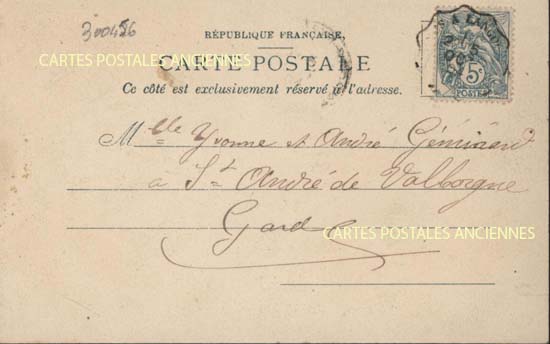 300456
RÉPUBLIQUE FRANÇAISE.
CARTE POSTALE
Ce côté est exclusivement réservé à l'adresse.
5c
POSTES
Mlle Yvonne et André
à St André de Valborgne
Gard
CARTES POSTALES ANCIENNES
CARTES POSTALES ANCIENNES